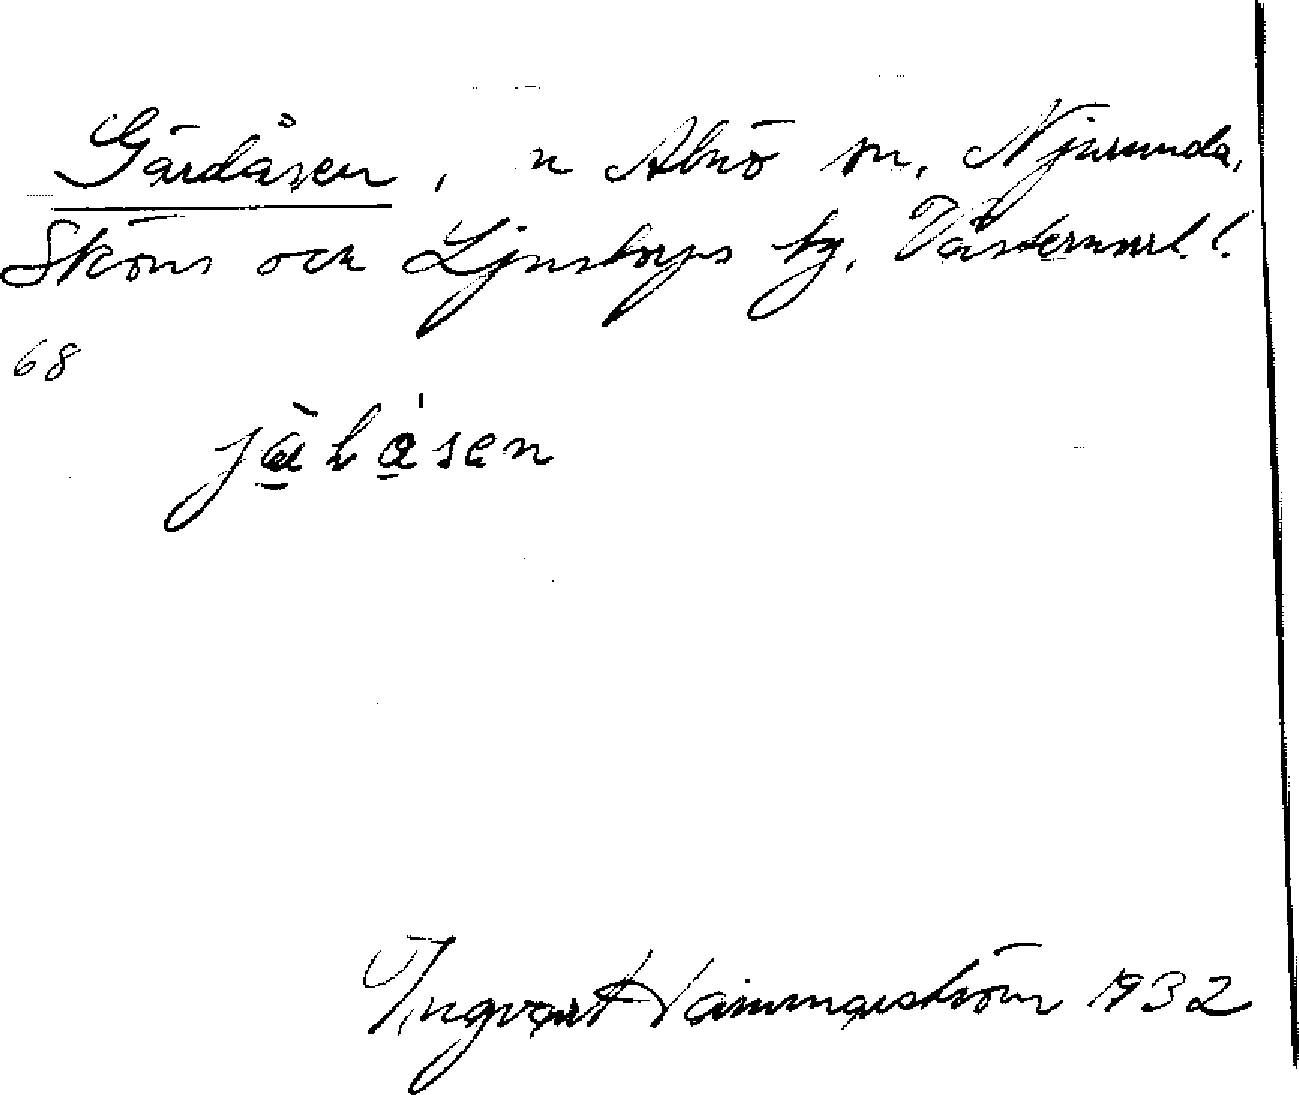 Gärdåsen, n Alnö sn, Njurunda,
Sköns och Ljustorps tg, Västernorrl. l.
68
jälåsen
Ingvart Hammarström 1932